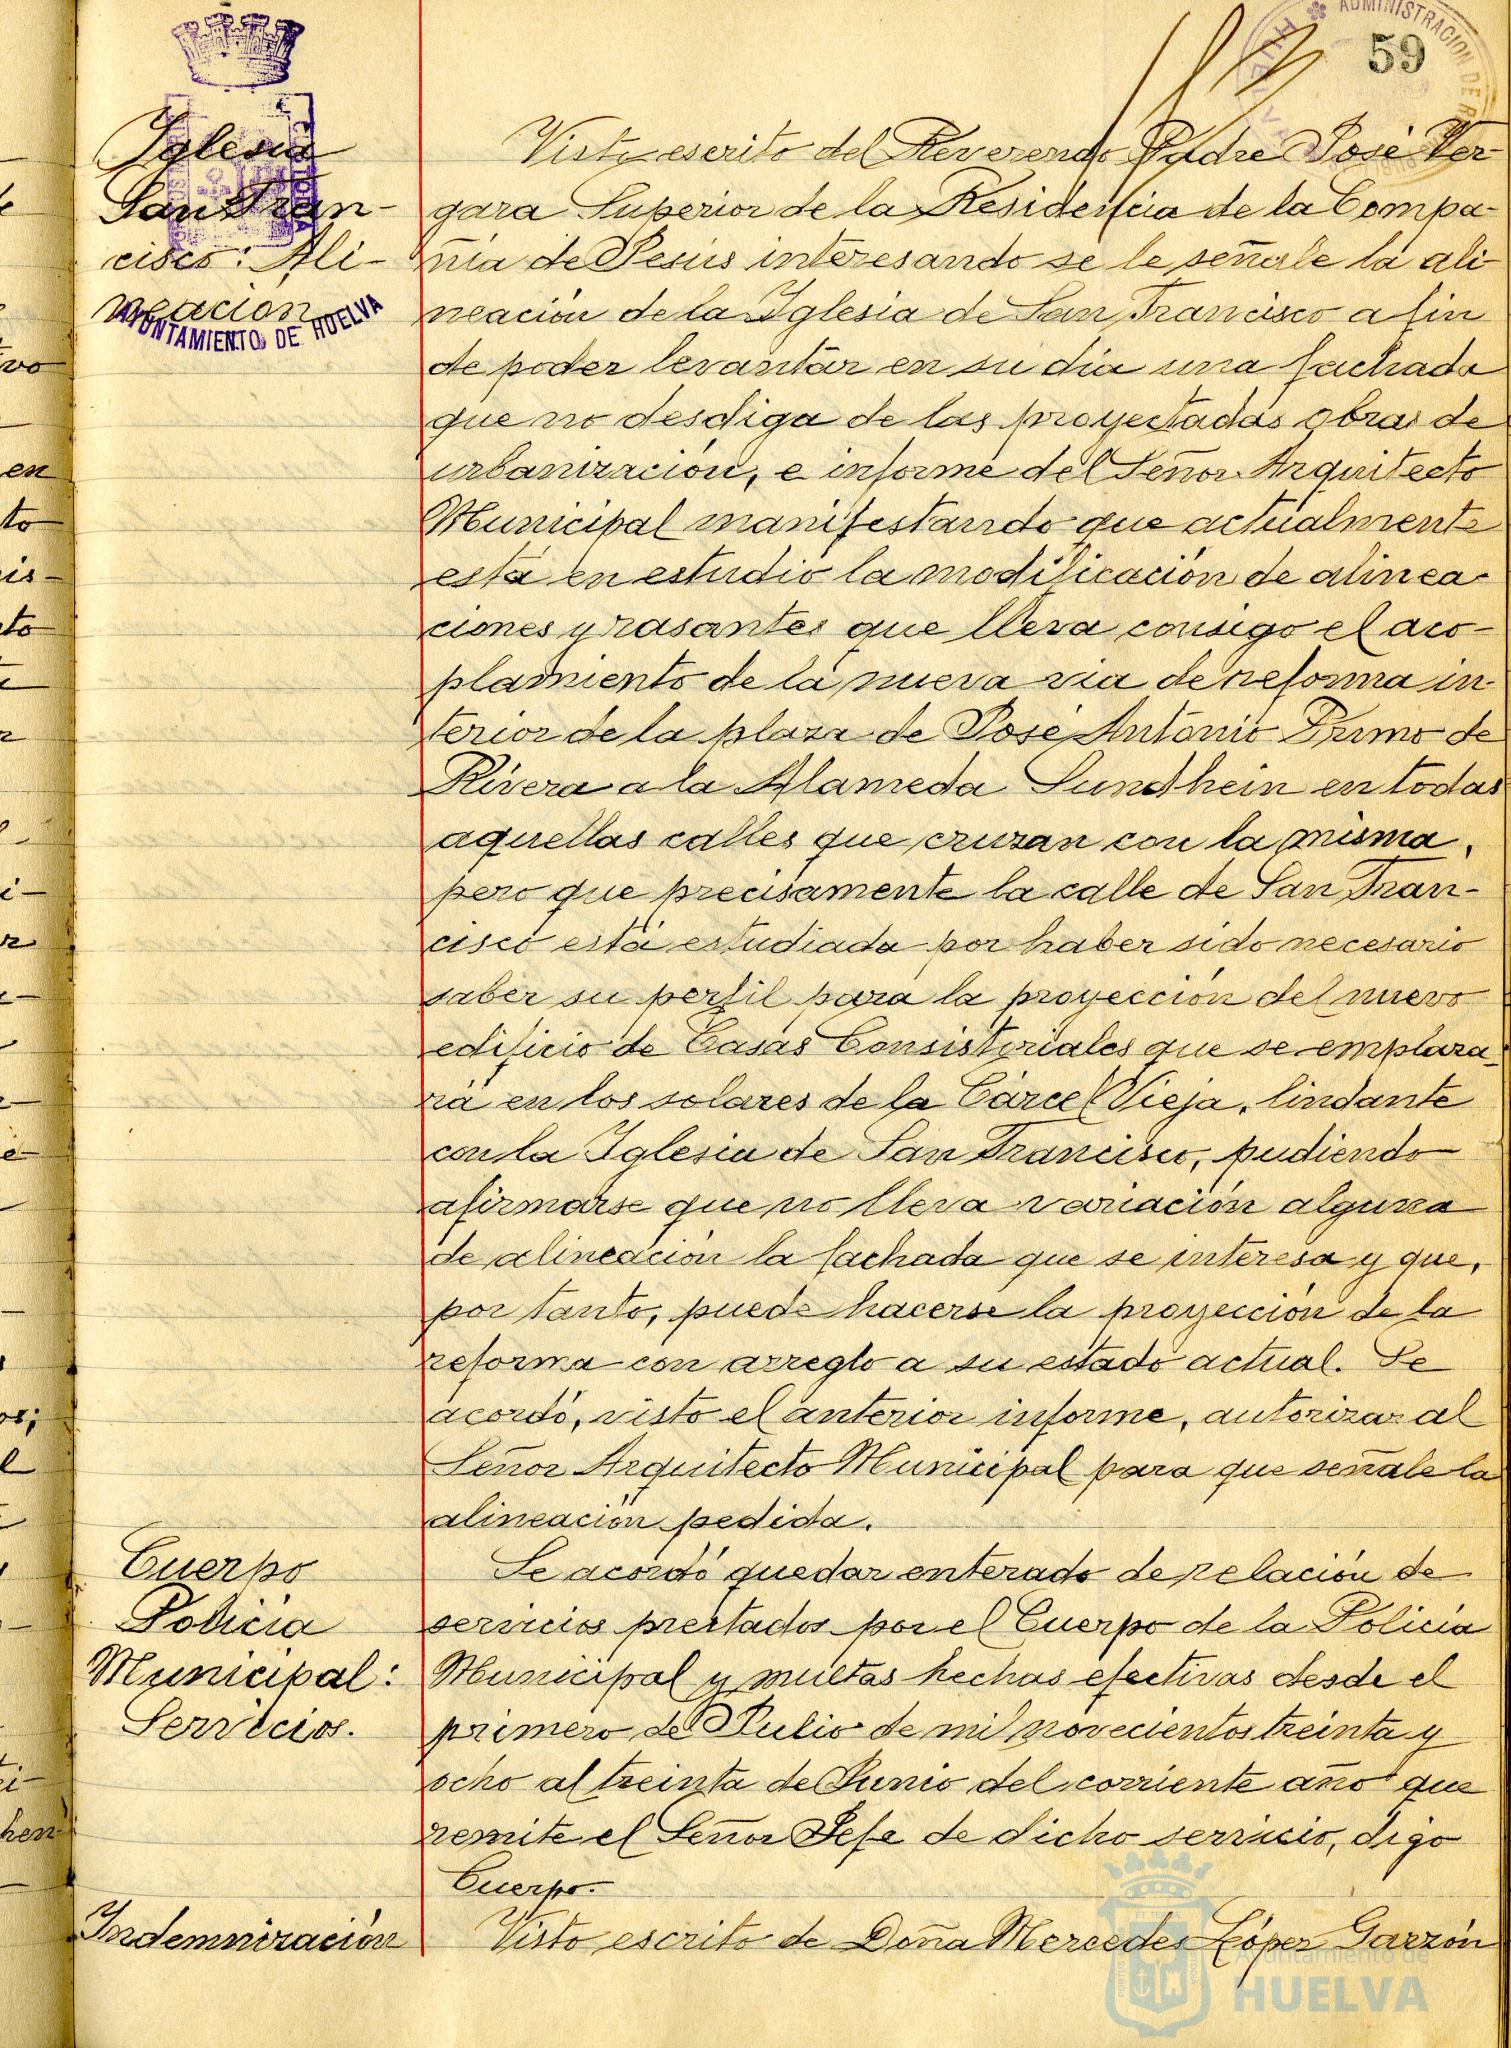 59
ADMINISTRACION DE
HUELVA
Iglesia
San Fran-
cisco: Ali-
neación
AYUNTAMIENTO DE HUELVA
Visto escrito del Reverendo Padre José Ver-
gara Superior de la Residencia de la Compa-
ñia de Jesús interesando se le señale la ali-
neación de la Iglesia de San Francisco a fin
de poder levantar en su dia una fachada
que no desdiga de las proyectadas obras de
urbanización, e informe del Señor Arquitecto
Municipal manifestando que actualmente
está en estudio la modificación de alinea-
ciones y rasantes que lleva consigo el aco-
plamiento de la nueva via de reforma in-
terior de la plaza de José Antonio Primo de
Rivera a la Alameda Sundhein en todas
aquellas calles que cruzan con la misma,
pero que precisamente la calle de San Fran-
cisco está estudiada por haber sido necesario
saber su perfil para la proyección del nuevo
edificio de Casas Consistoriales que se emplaza-
rá en los solares de la Cárcel Vieja, lindante
con la Iglesia de San Francisco, pudiendo
afirmarse que no lleva variación alguna
de alineación la fachada que se interesa y que,
por tanto, puede hacerse la proyección de la
reforma con arreglo a su estado actual. Se
acordó, visto el anterior informe, autorizar al
Señor Arquitecto Municipal para que señale la
alineación pedida.
Cuerpo
Policia
Municipal:
Servicios.
Se acordó quedar enterado de relación de
servicios prestados por el Cuerpo de la Policía
Municipal y multas hechas efectivas desde el
primero de Julio de mil novecientos treinta y
ocho al treinta de Junio del corriente año que
remite el Señor Jefe de dicho servicio, digo
Cuerpo.
Indemnización
Visto escrito de Doña Mercedes López Garzón
Ayuntamiento de
HUELVA